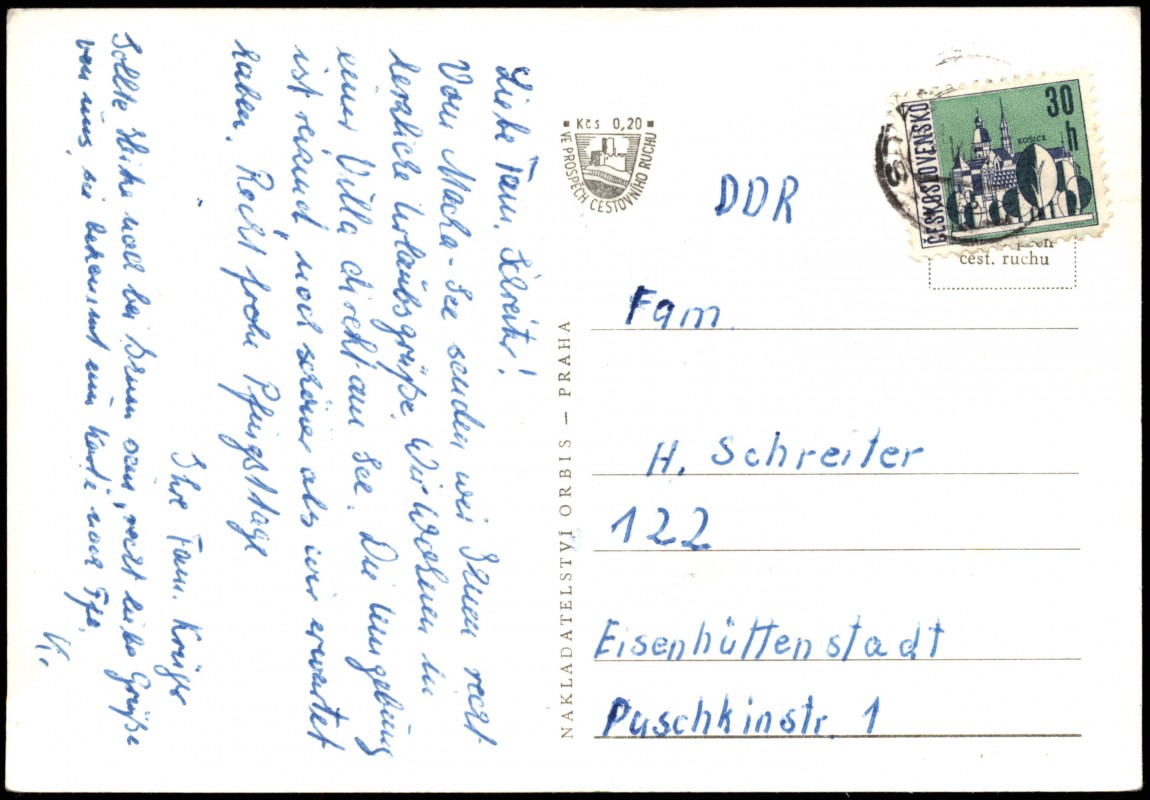 Liebe Fam. Schreiter!
Vom Macha-See senden wir Ihnen recht
herzliche Urlaubsgrüße. Wir wohnen in
einer Villa direkt am See. Die Umgebung
ist reizend, noch schöner als wir erwartet
haben. Recht frohe Pfingsttage
Ihre Fam. Krüger
Sollte Heike noch bei Ihnen sein, recht liebe Grüße
von uns, sie bekommt eine Karte nach Ffo.
K.
Kčs 0,20
VE PROSPĚCH CESTOVNÍHO RUCHU
NAKLADATELSTVÍ ORBIS — PRAHA
DDR
ČESKOSLOVENSKO
30 h
KOŠICE
cest. ruchu
Fam.
H. Schreiter
122
Eisenhüttenstadt
Puschkinstr. 1